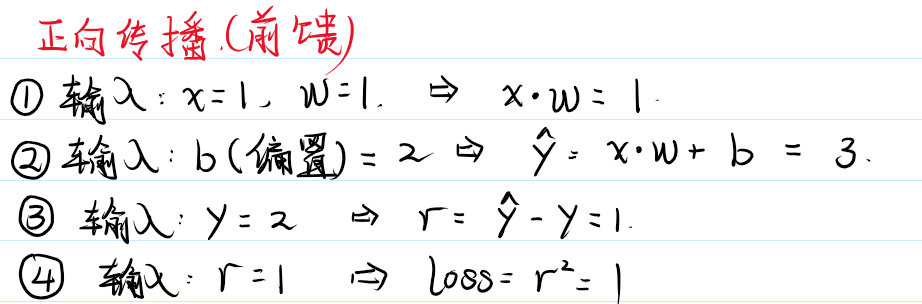 正向传播.(前馈)
① 输入: x=1, w=1. ⇒ x·w = 1.
② 输入: b(偏置) = 2 ⇒ ŷ = x·w + b = 3.
③ 输入: y = 2 ⇒ r = ŷ - y = 1.
④ 输入: r = 1 ⇒ loss = r² = 1